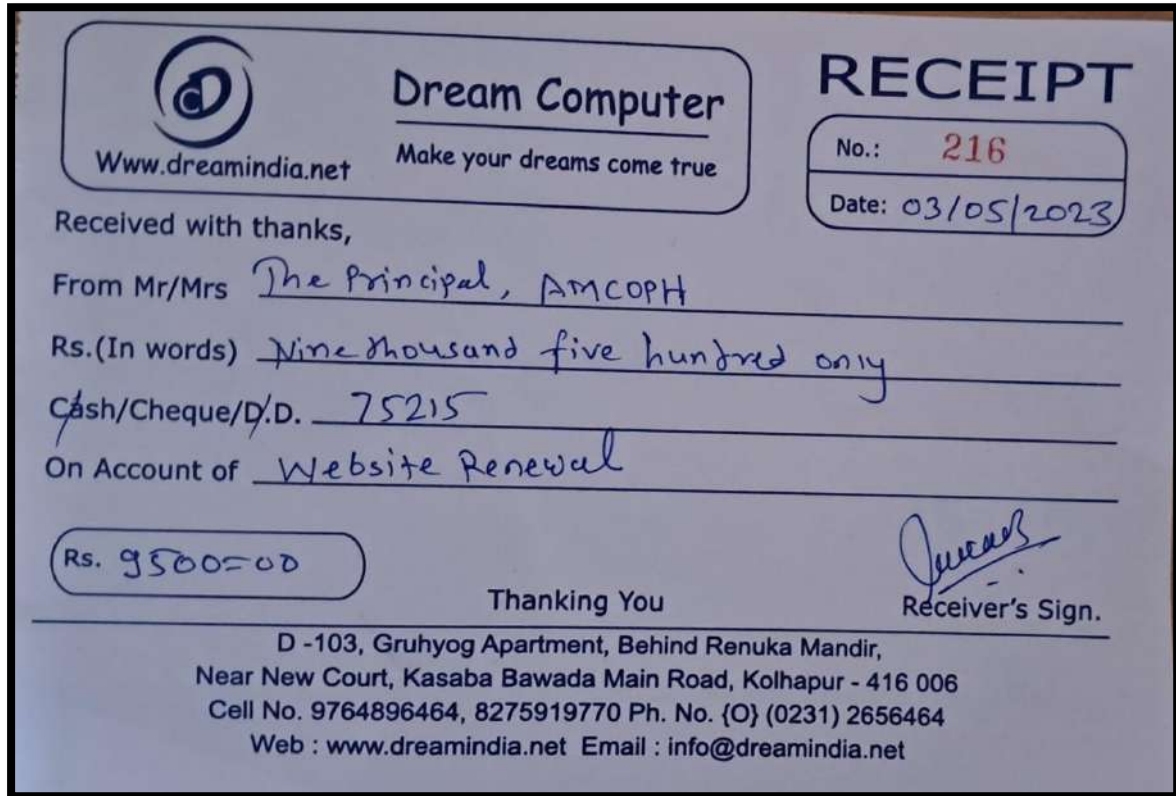 Dream Computer
Make your dreams come true
Www.dreamindia.net
RECEIPT
No.: 216
Date: 03/05/2023
Received with thanks,
From Mr/Mrs The Principal, AMCOPH
Rs.(In words) Nine thousand five hundred only
Cash/Cheque/D.D. 75215
On Account of Website Renewal
Rs. 9500=00
Thanking You
Receiver's Sign.
D -103, Gruhyog Apartment, Behind Renuka Mandir,
Near New Court, Kasaba Bawada Main Road, Kolhapur - 416 006
Cell No. 9764896464, 8275919770 Ph. No. {O} (0231) 2656464
Web : www.dreamindia.net Email : info@dreamindia.net